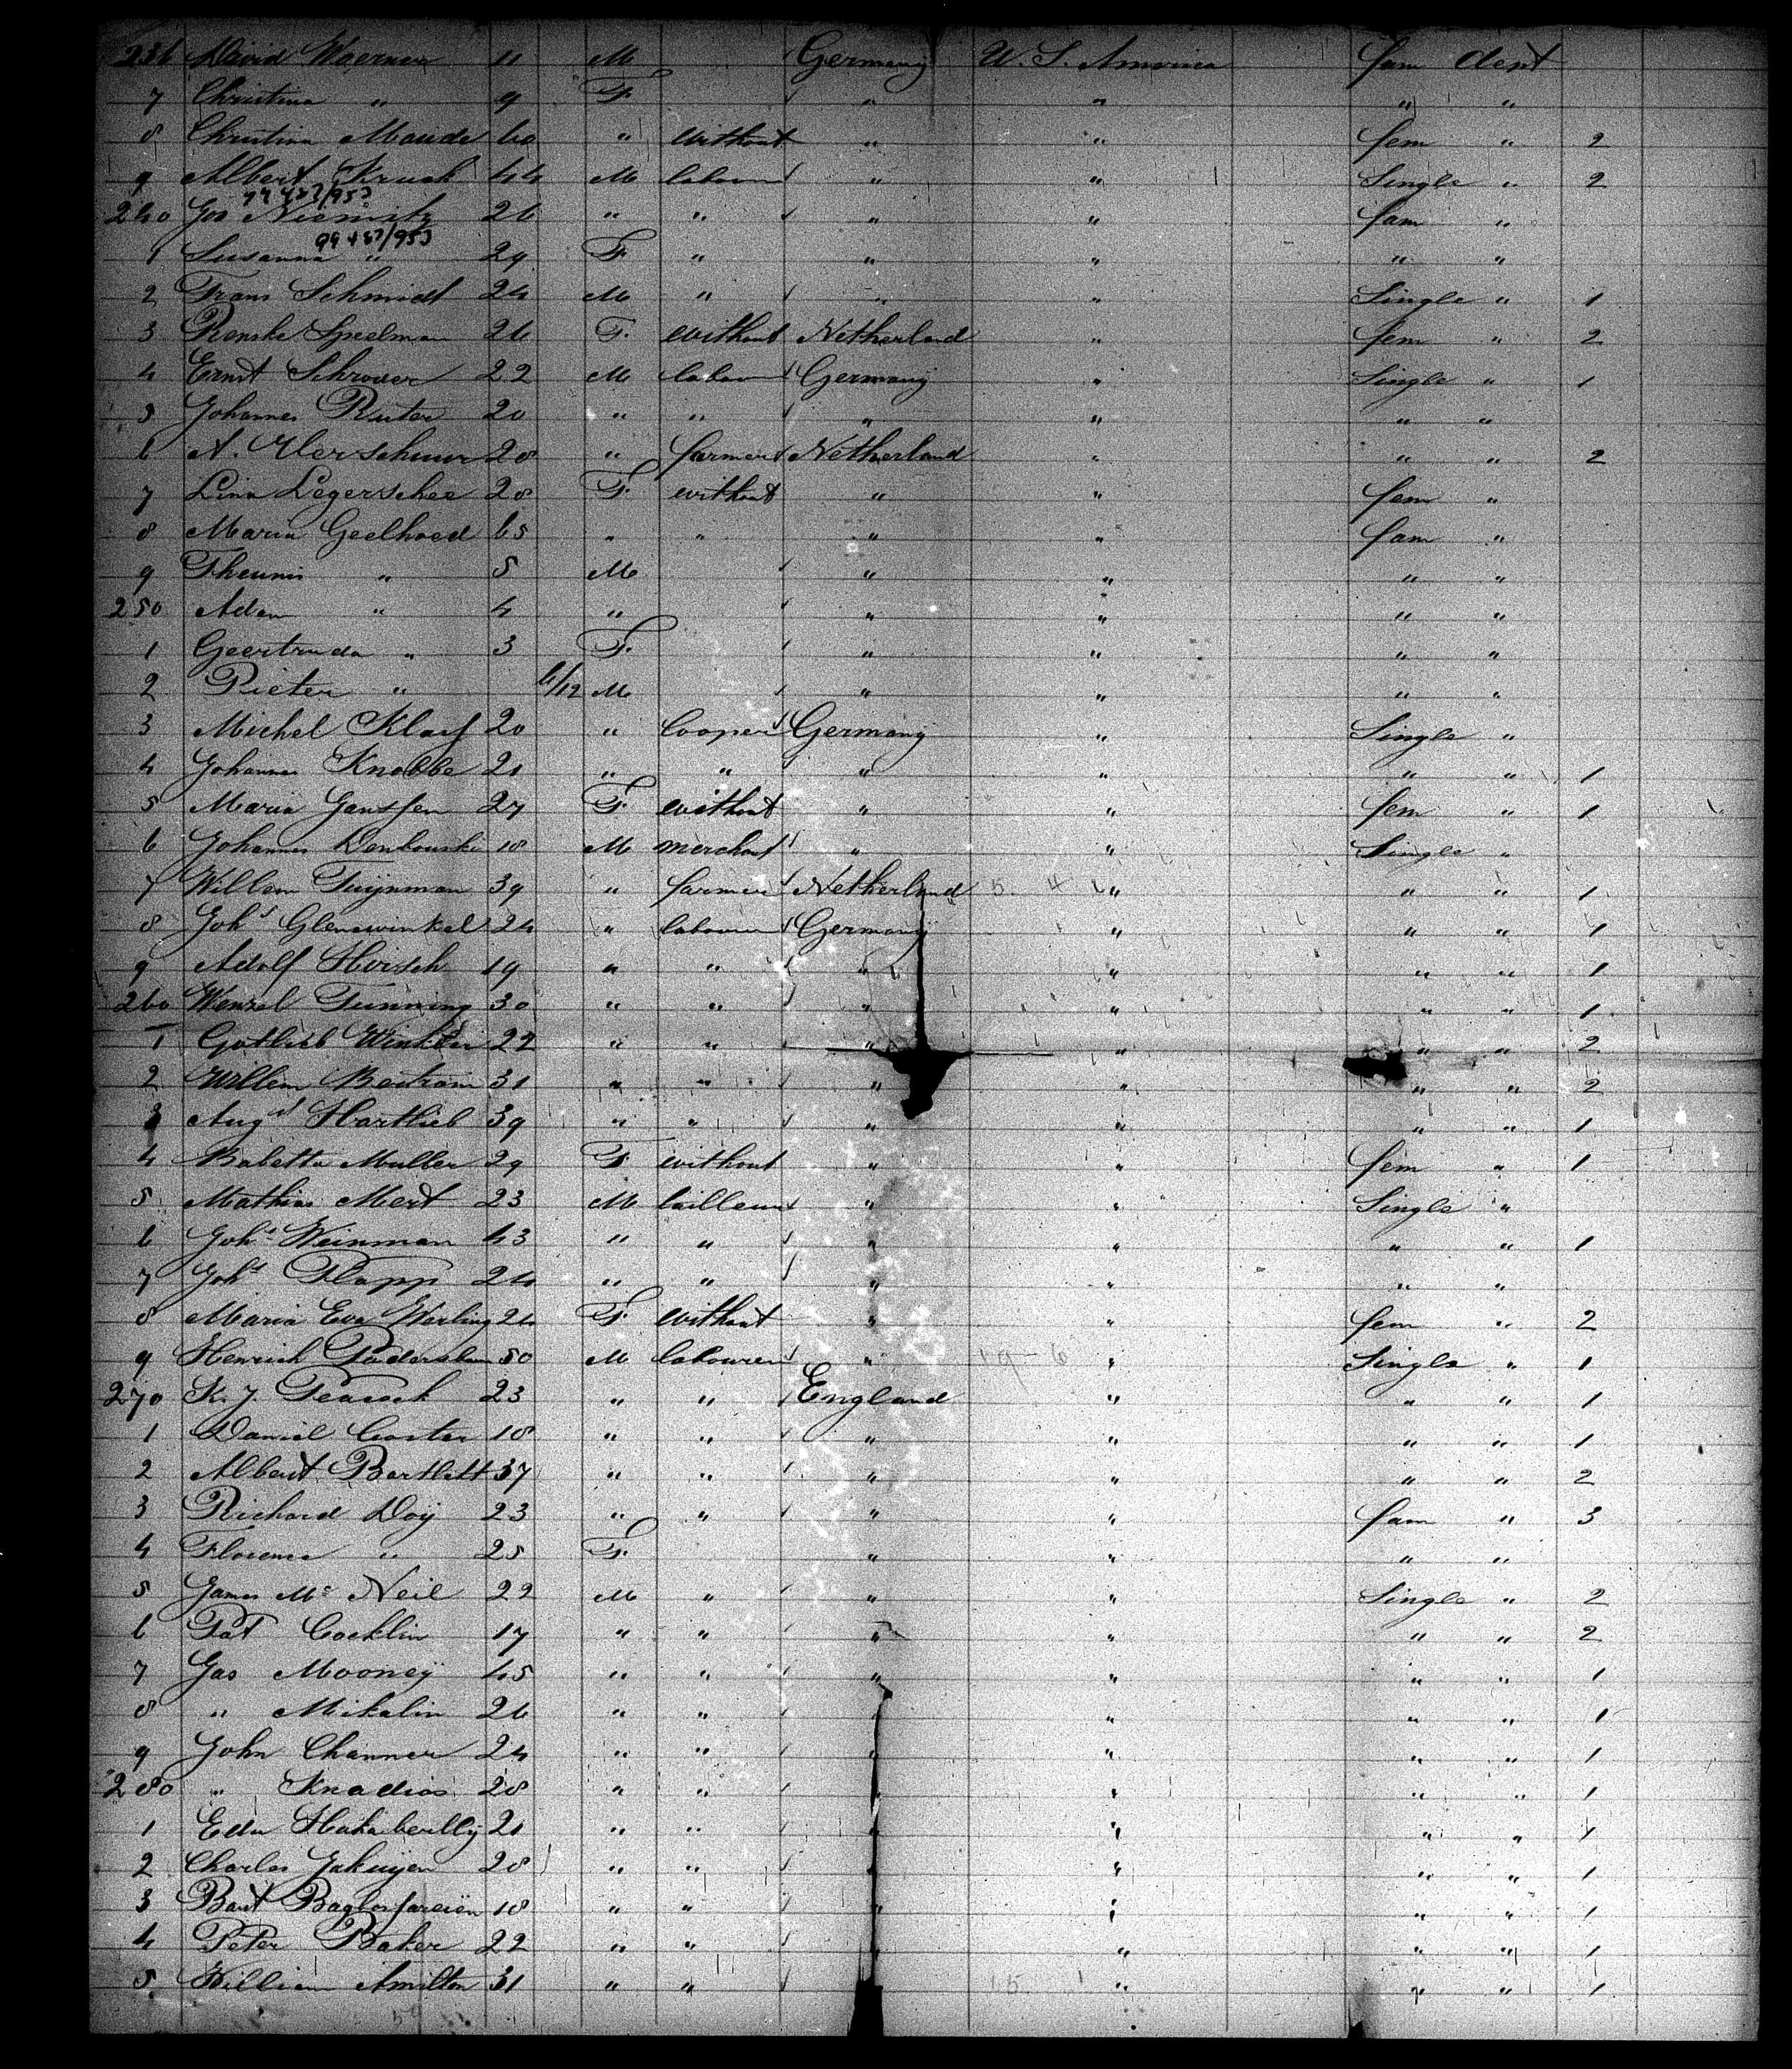 236 David Woerner 11 M Germany U. S. America fam dent
7 Christina " 9 F. " " " "
8 Christina Maude 60 " without " " fem " 2
9 Albert Kruck 44 M labour " " Single " 2
240 Jos Niemitz 26 " " " " fam "
1 Susanna " 29 F. " " " " "
2 Frans Schmidt 24 M " " " Single " 1
3 Renske Speelman 26 F. without Netherland " fem " 2
4 Ernst Schrover 22 M labour Germany " Single " 1
5 Johannes Ruter 20 " " " " " "
6 A. Verschuur 28 " farmer Netherland " " " 2
7 Lina Legerschee 28 F. without " " fem "
8 Maria Geelhoed 65 " " " " fam "
9 Theunis " 5 M " " " "
250 Adam " 4 " " " " "
1 Geertruda " 3 F. " " " "
2 Pieter " 6/12 M " " " "
3 Michel Klarf 20 " Cooper Germany " Single "
4 Johannes Knobbe 21 " " " " " " 1
5 Maria Janssen 27 F. without " " fem " 1
6 Johannes Denkouski 18 M merchant " " Single "
7 Willem Tuijnman 39 " farmer Netherland " " " 1
8 Johs Glenewinkel 24 " labour Germany " " " 1
9 Adolf Hirsch 19 " " " " " " 1
260 Wenzel Tunning 30 " " " " " " 1
1 Gottlieb Winkler 22 " " " " " " 2
2 Willem Bertram 31 " " " " " " 2
3 Augst Hartlieb 39 " " " " " " 1
4 Babetta Muller 29 F. without " " fem " 1
5 Mathias Mert 23 M tailleur " " Single "
6 Johs Weinman 43 " " " " " " 1
7 Johs Plapp 24 " " " " " "
8 Maria Eva Werling 24 F. without " " fem " 2
9 Henrich 50 M labourer " " Single " 1
270 K. J. Peacock 23 " " England " " " 1
1 Daniel Carter 18 " " " " " " 1
2 Albert Bartlett 37 " " " " " " 2
3 Richard Doÿ 23 " " " " fam " 3
4 Florence " 25 F. " " " "
5 James Mc Neil 22 M " " " Single " 2
6 Pat Cocklin 17 " " " " " " 2
7 Jas Mooney 45 " " " " " " 1
8 " Mikalin 26 " " " " " " 1
9 John Channer 24 " " " " " " 1
280 " Knadios 28 " " " " " " 1
1 Edw Hakaberlly 21 " " " " " " 1
2 Charles Jakuijen 28 " " " " " " 1
3 Bart 18 " " " " " " 1
4 Peter Baker 22 " " " " " " 1
5 William Amilton 31 " " " " " 1